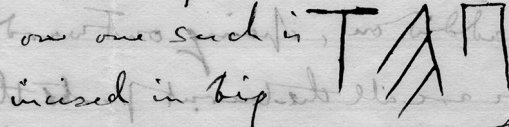 on one such is Τ Π
incised in big